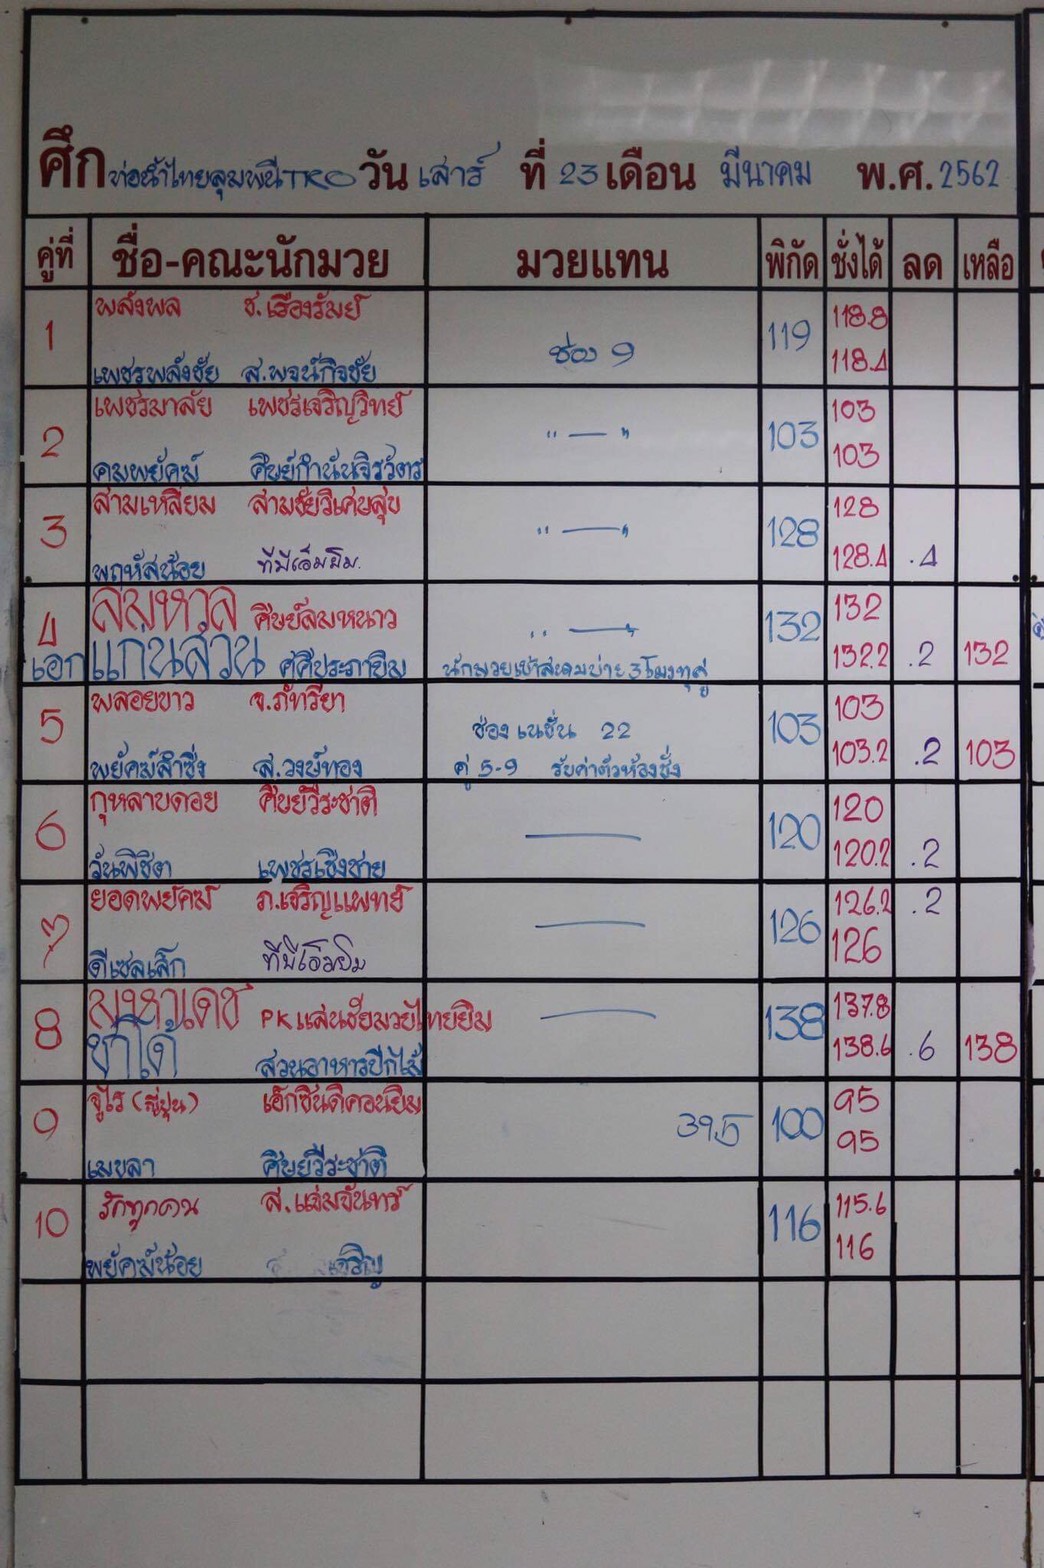 ศึก ท่อน้ำไทยลุมพินีTKO วัน เสาร์ ที่ 23 เดือน มีนาคม พ.ศ. 2562
คู่ที่ ชื่อ-คณะนักมวย มวยแทน พิกัด ชั่งได้ ลด เหลือ
1 พลังพล ช.เรืองรัมย์ 119 118.8
เพชรพลังชัย ส.พจน์กิจชัย ช่อง 9 118.4
2 เพชรมาลัย เพชรเจริญวิทย์ " — " 103 103
คมพยัคฆ์ ศิษย์กำนันจิรวัตร 103
3 สามเหลี่ยม สามชัยวิเศษสุข " — " 128 128
พฤหัสน้อย ทีมีเอ็มยิม 128.4 .4
4 สมหวัง ศิษย์ลมหนาว " — " 132 132
เอก แก่นสวน ศศิประภายิม นักมวยเข้าสนามบ่าย 3 โมงทุกคู่ 132.2 .2 132
5 พลอยขาว จ.ภัทรียา ช่อง เนชั่น 22 103 103
พยัคฆ์สำซิ่ง ส.วงษ์ทอง คู่ 5-9 รับค่าตัวห้องชั่ง 103.2 .2 103
6 กุหลาบดอย ศิษย์วีระชาติ — 120 120
วันพิชิต เพชรเชิงชาย 120.2 .2
7 ยอดพยัคฆ์ ภ.เจริญแพทย์ — 126 126.2 .2
ดีเซลเล็ก ทีมีเอ็มยิม 126
8 มหาเดช PKแสนชัยมวยไทยยิม — 138 137.8
ยาโด้ สวนอาหารปีกไม้ 138.6 .6 138
9 จูไร (ญี่ปุ่น) เอ๊กซินดิคอนยิม 39.5 100 95
เมขลา ศิษย์วีระชาติ 95
10 รักทุกคน ส.แต่มจันทร์ 116 115.6
พยัคฆ์น้อย 116